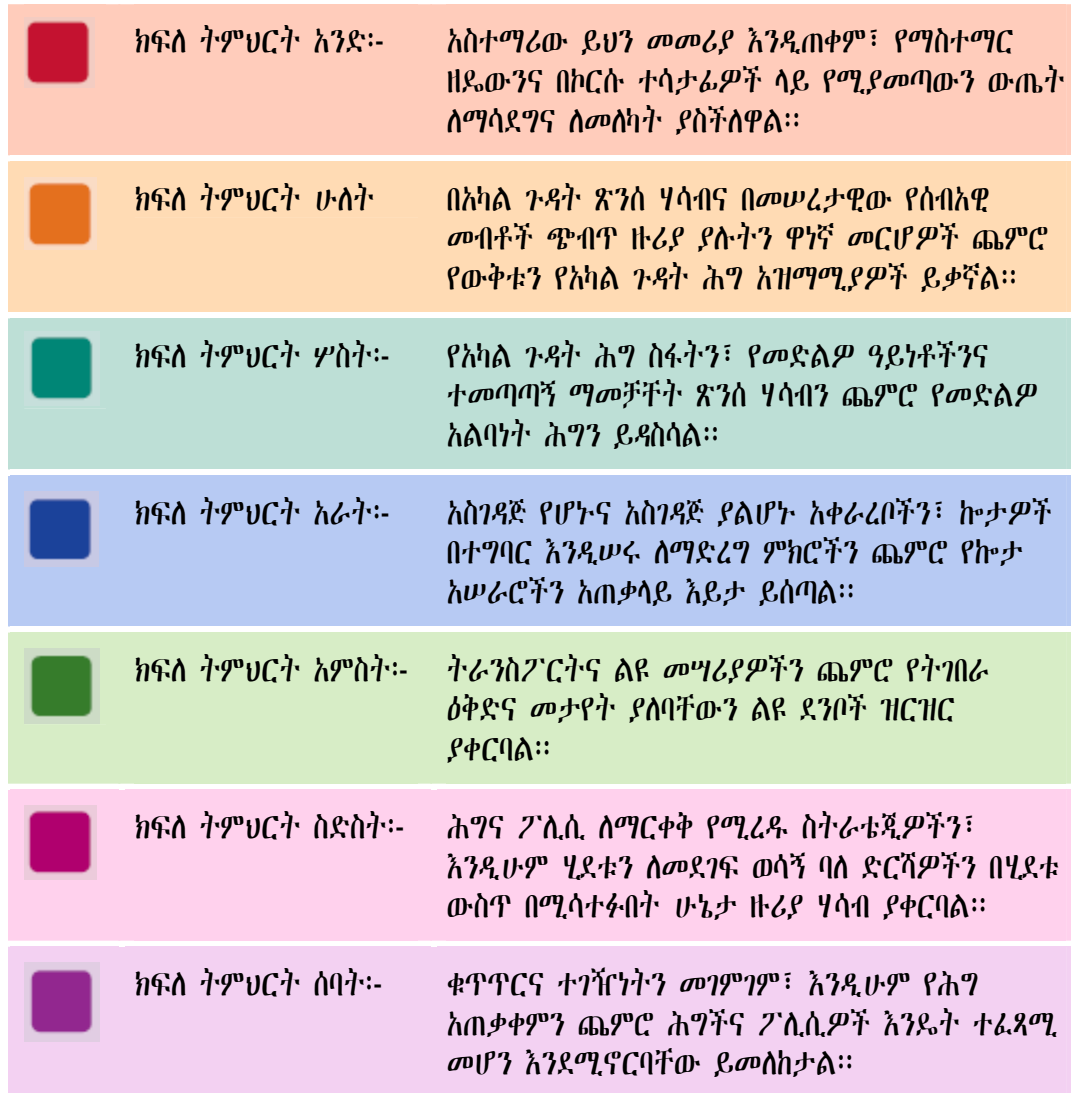 ክፍለ ትምህርት አንድ፡- አስተማሪው ይህን መመሪያ እንዲጠቀም፣ የማስተማር
ዘዴውንና በኮርሱ ተሳታፊዎች ላይ የሚያመጣውን ውጤት
ለማሳደግና ለመለካት ያስችለዋል፡፡
ክፍለ ትምህርት ሁለት በአካል ጉዳት ጽንሰ ሃሳብና በመሠረታዊው የሰብአዊ
መብቶች ጭብጥ ዙሪያ ያሉትን ዋነኛ መርሆዎች ጨምሮ
የውቅቱን የአካል ጉዳት ሕግ አዝማሚያዎች ይቃኛል፡፡
ክፍለ ትምህርት ሦስት፡- የአካል ጉዳት ሕግ ስፋትን፣ የመድልዎ ዓይነቶችንና
ተመጣጣኝ ማመቻቸት ጽንሰ ሃሳብን ጨምሮ የመድልዎ
አልባነት ሕግን ይዳስሳል፡፡
ክፍለ ትምህርት አራት፡- አስገዳጅ የሆኑና አስገዳጅ ያልሆኑ አቀራረቦችን፣ ኰታዎች
በተግባር እንዲሠሩ ለማድረግ ምክሮችን ጨምሮ የኰታ
አሠራሮችን አጠቃላይ እይታ ይሰጣል፡፡
ክፍለ ትምህርት አምስት፡- ትራንስፖርትና ልዩ መሣሪያዎችን ጨምሮ የትገበራ
ዕቅድና መታየት ያለባቸውን ልዩ ደንቦች ዝርዝር
ያቀርባል፡፡
ክፍለ ትምህርት ስድስት፡- ሕግና ፖሊሲ ለማርቀቅ የሚረዱ ስትራቴጂዎችን፣
እንዲሁም ሂደቱን ለመደገፍ ወሳኝ ባለ ድርሻዎችን በሂደቱ
ውስጥ በሚሳተፉበት ሁኔታ ዙሪያ ሃሳብ ያቀርባል፡፡
ክፍለ ትምህርት ሰባት፡- ቁጥጥርና ተገዥነትን መገምገም፣ እንዲሁም የሕግ
አጠቃቀምን ጨምሮ ሕግችና ፖሊሲዎች እንዴት ተፈጻሚ
መሆን እንደሚኖርባቸው ይመለከታል፡፡